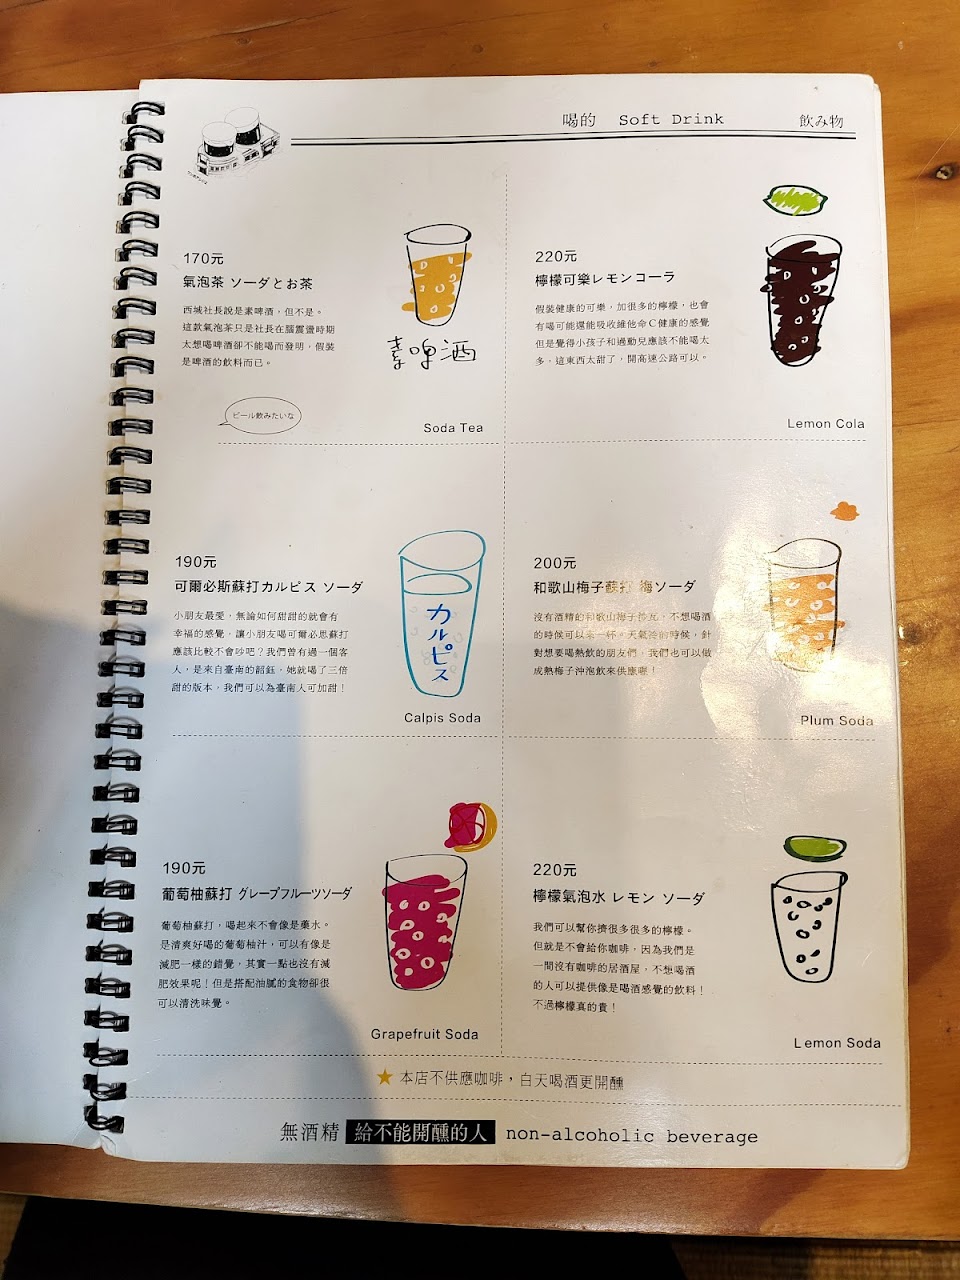 喝的 Soft Drink 飲み物
170元
氣泡茶 ソーダとお茶
西城社長說是素啤酒，但不是。
這款氣泡茶只是社長在腦震盪時期
太想喝啤酒卻不能喝而發明，假裝
是啤酒的飲料而已。
素啤酒
ビール飲みたいな
Soda Tea
220元
檸檬可樂レモンコーラ
假裝健康的可樂，加很多的檸檬，也會
有喝可能還能吸收維他命C健康的感覺
但是覺得小孩子和過動兒應該不能喝太
多，這東西太甜了，開高速公路可以。
Lemon Cola
190元
可爾必斯蘇打カルピス ソーダ
小朋友最愛，無論如何甜甜的就會有
幸福的感覺，讓小朋友喝可爾必思蘇打
應該比較不會吵吧？我們曾有過一個客
人，是來自臺南的韶鈺，她就喝了三倍
甜的版本，我們可以為臺南人可加甜！
カルピス
Calpis Soda
200元
和歌山梅子蘇打 梅ソーダ
沒有酒精的和歌山梅子沙瓦，不想喝酒
的時候可以來一杯。天氣冷的時候，針
對想要喝熱飲的朋友們，我們也可以做
成熱梅子沖泡飲來供應喔！
Plum Soda
190元
葡萄柚蘇打 グレープフルーツソーダ
葡萄柚蘇打，喝起來不會像是藥水。
是清爽好喝的葡萄柚汁，可以有像是
減肥一樣的錯覺，其實一點也沒有減
肥效果呢！但是搭配油膩的食物卻很
可以清洗味覺。
Grapefruit Soda
220元
檸檬氣泡水 レモン ソーダ
我們可以幫你擠很多很多的檸檬。
但就是不會給你咖啡，因為我們是
一間沒有咖啡的居酒屋，不想喝酒
的人可以提供像是喝酒感覺的飲料！
不過檸檬真的貴！
Lemon Soda
★ 本店不供應咖啡，白天喝酒更開醺
無酒精 給不能開醺的人 non-alcoholic beverage